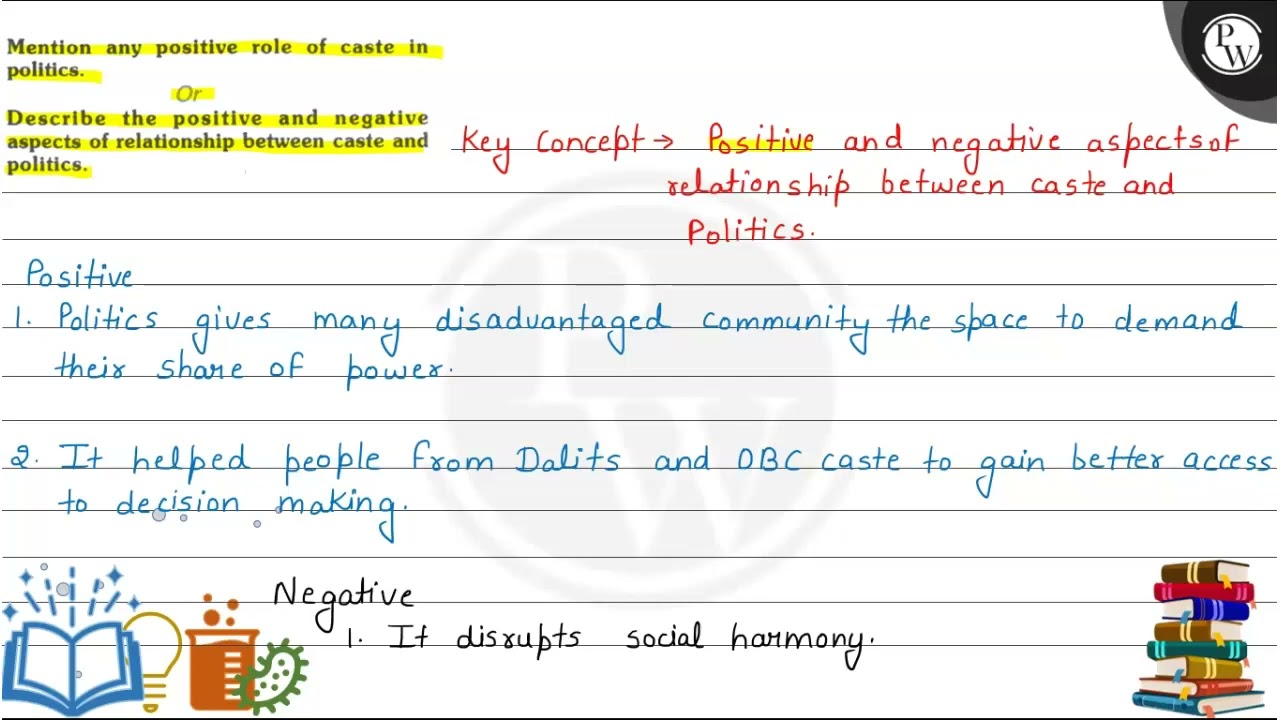 Mention any positive role of caste in
politics.
Or
Describe the positive and negative
aspects of relationship between caste and
politics.
PW
Key Concept → Positive and negative aspects of
relationship between caste and
Politics.
Positive
1. Politics gives many disadvantaged community the space to demand
their share of power.
2. It helped people from Dalits and OBC caste to gain better access
to decision making.
Negative
1. It disrupts social harmony.